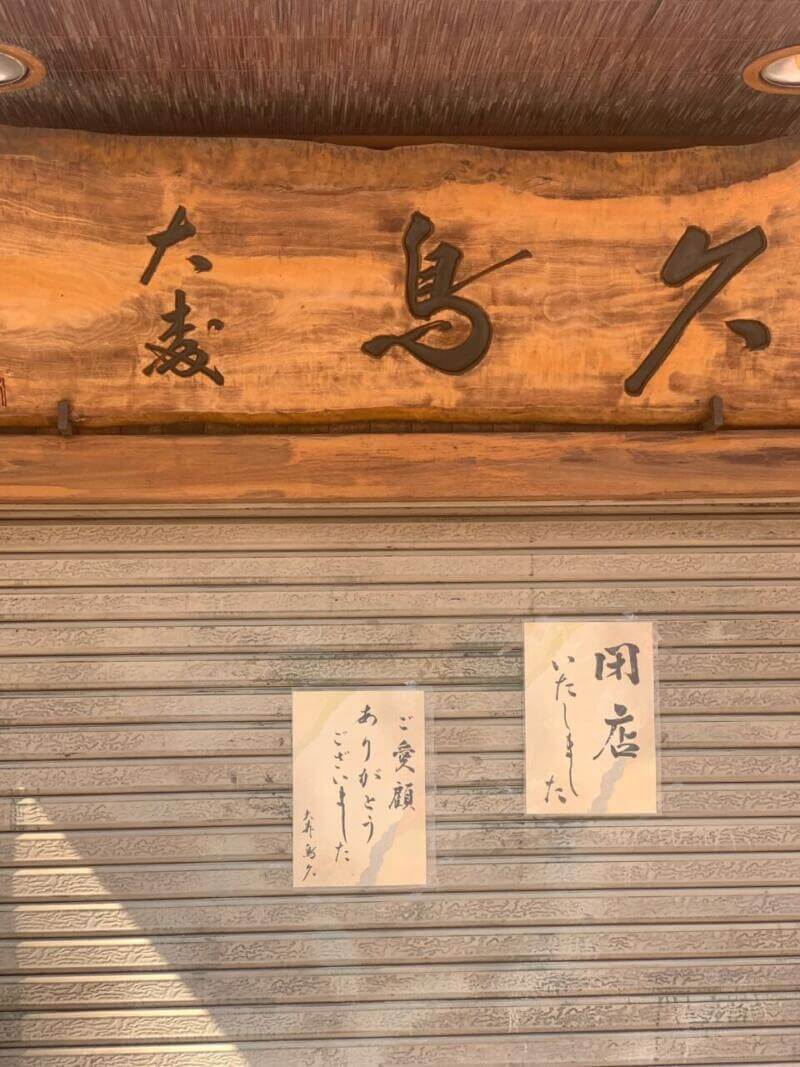 大寿 鳥久
閉店
いたしました
ご愛顧
ありがとう
ございました
大寿 鳥久